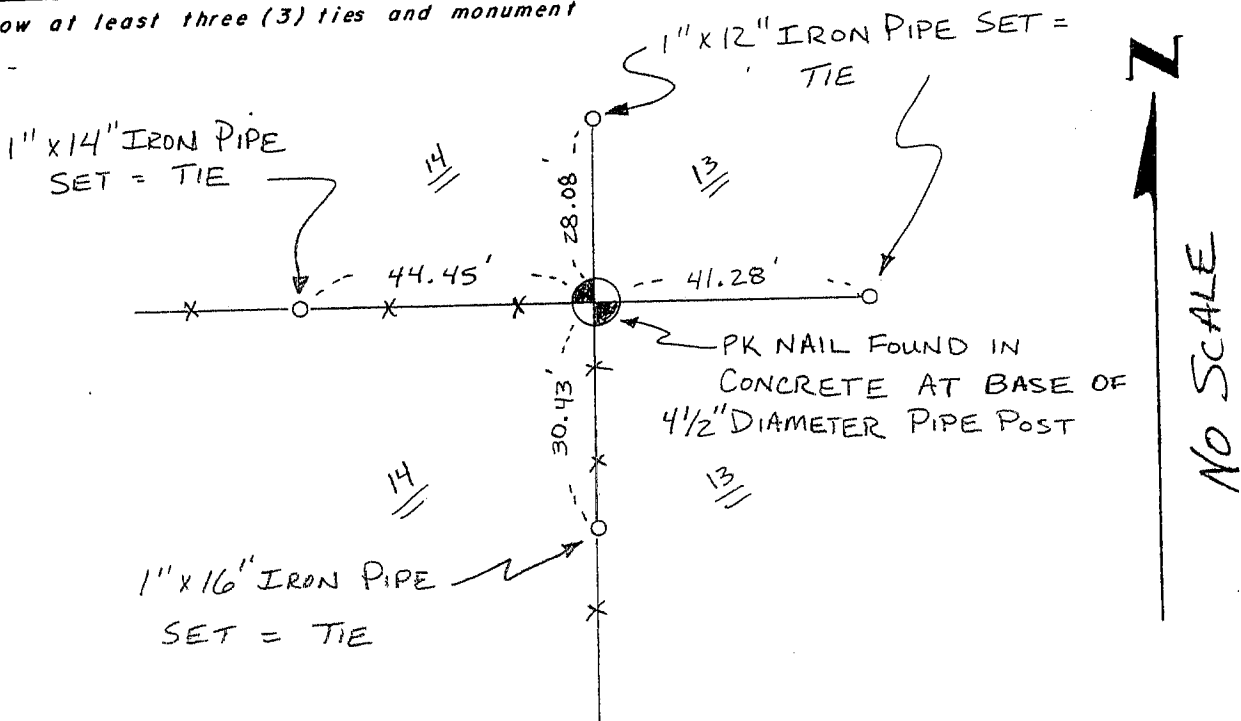 ow at least three (3) ties and monument
1" x 12" IRON PIPE SET =
TIE
1" x 14" IRON PIPE
SET = TIE
14
13
28.08'
44.45'
41.28'
PK NAIL FOUND IN
CONCRETE AT BASE OF
4 1/2" DIAMETER PIPE POST
30.43'
14
13
1" x 16" IRON PIPE
SET = TIE
N
NO SCALE